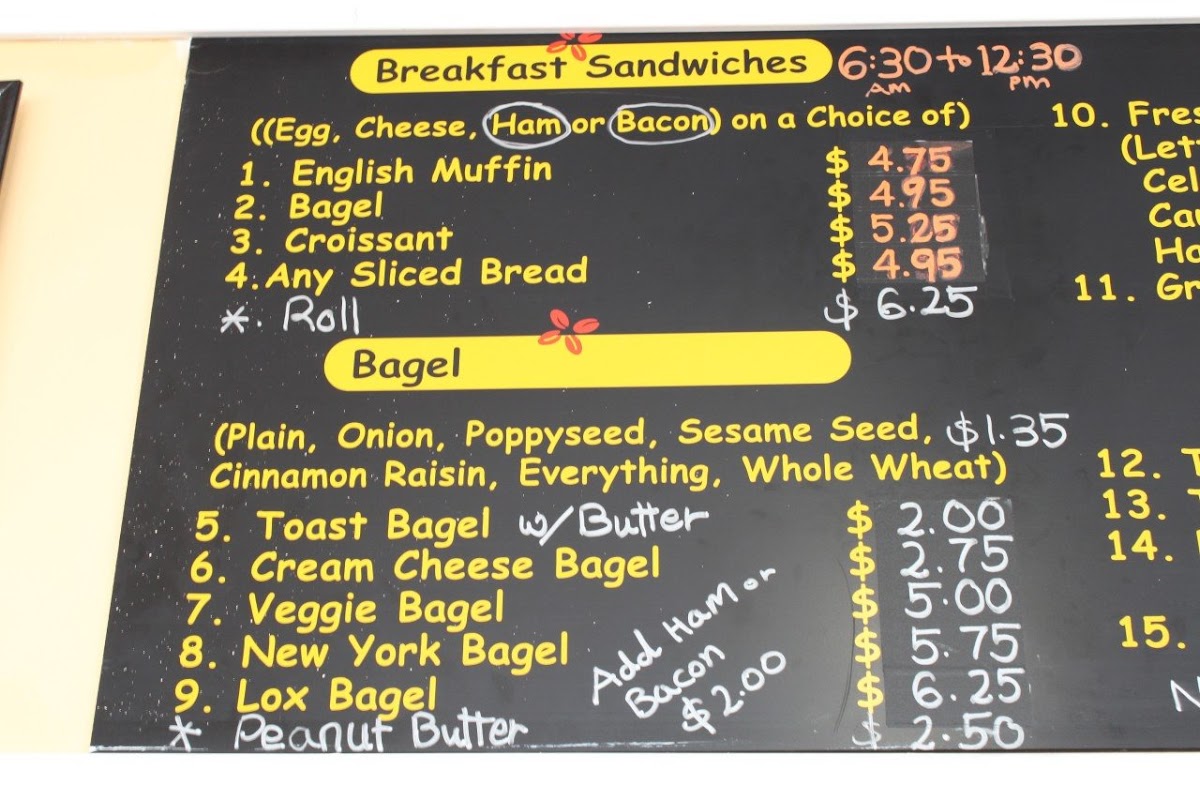 Breakfast Sandwiches 6:30 AM to 12:30 pm
((Egg, Cheese, Ham or Bacon) on a Choice of)
1. English Muffin $ 4.75
2. Bagel $ 4.95
3. Croissant $ 5.25
4. Any Sliced Bread $ 4.95
*. Roll $ 6.25
Bagel
(Plain, Onion, Poppyseed, Sesame Seed, $1.35
Cinnamon Raisin, Everything, Whole Wheat)
5. Toast Bagel w/ Butter $ 2.00
6. Cream Cheese Bagel $ 2.75
7. Veggie Bagel $ 5.00
8. New York Bagel $ 5.75
9. Lox Bagel $ 6.25
* Peanut Butter $ 2.50
Add Ham or
Bacon
$2.00
10.
11.
12.
13.
14.
15.